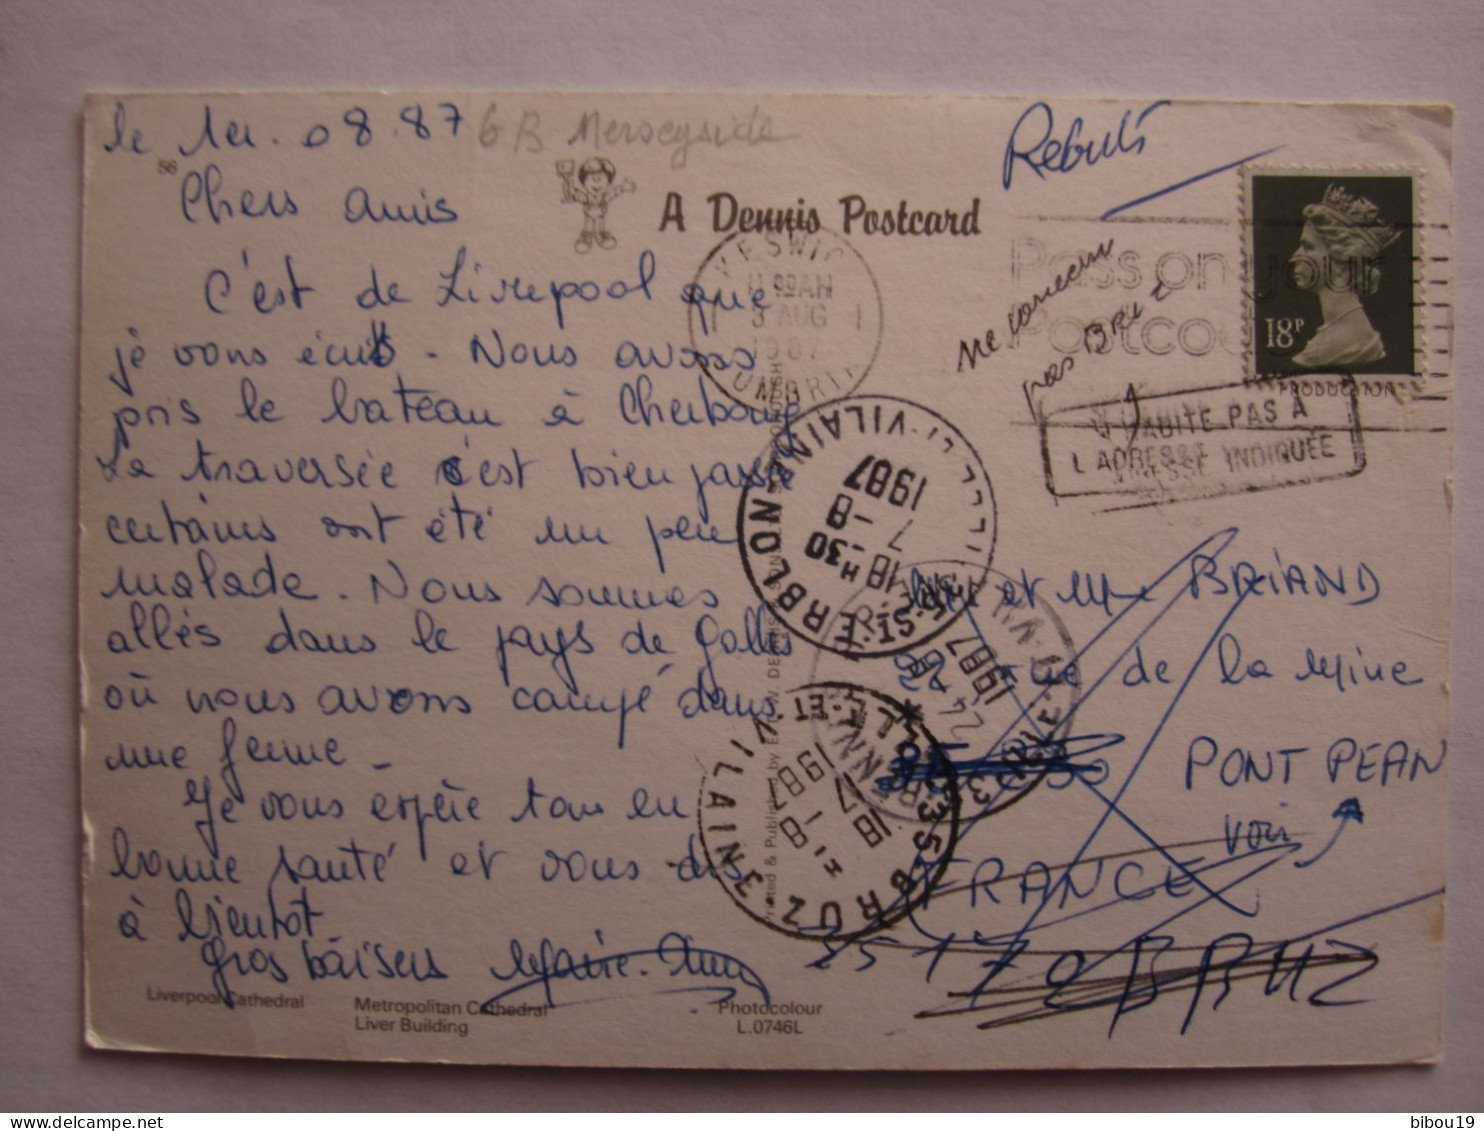 le 1er. 08.87
GB Merseyside
56
Chers amis
C'est de Liverpool que
je vous écris - Nous avons
pris le bateau à Cherbourg
La traversée c'est bien passée
certains ont été un peu
malade. Nous sommes
allés dans le pays de Galles
où nous avons campé dans
une ferme -
Je vous espère tous en
bonne santé et vous dis
à bientot
Gros baisers Marie-
A Dennis Postcard
Rebuts
Pass on your
Postcode
11 AM
3 AUG
1987
CUMBRIA
18P
PRODUCTION
pas
N'HABITE PAS A
L'ADRESSE INDIQUEE
ILLE-ET-VILAINE
NOYAL
18 H 30
7 -8
1987
24
1987
35 BRUZ
ILLE-ET-VILAINE
18 H
17 - 8
1987
Mr et Mme BRIAND
22 rue de la Mine
PONT PEAN
voir
FRANCE
35170 BRUZ
Liverpool Cathedral
Metropolitan Cathedral
Liver Building
Photocolour
L.0746L
delcampe.net
bibou19